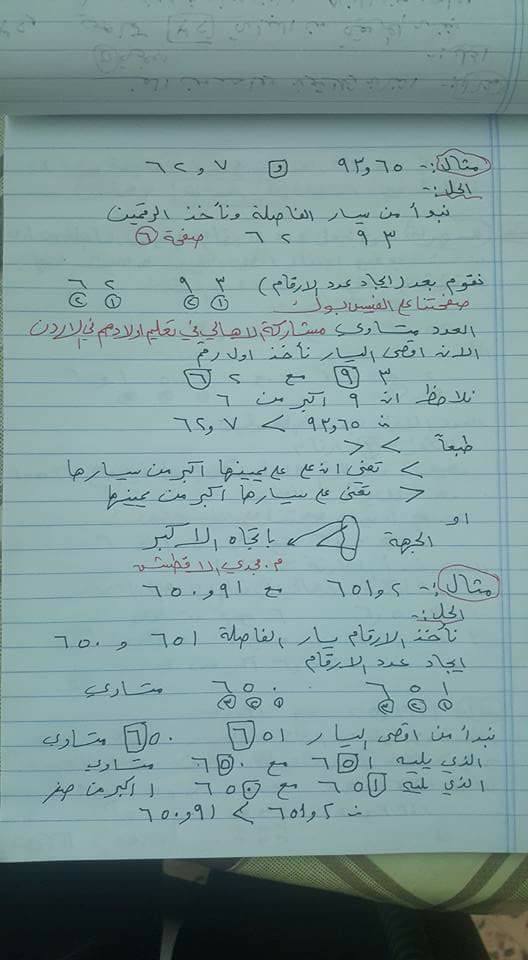 مثال:- ٩٣و٦٥ و ٦٢و٧
الحل:-
نبدأ من يسار الفاصلة ونأخذ الرقمين
٩٣ ٦٢ صفحة ٦
نقوم بعد (ايجاد عدد الارقام) ٩٣ ٦٢
١ ٢ ١ ٢
صفحتنا على الفيس بوك
العدد متساوي مشاركة الاهالي في تعليم اولادهم في الاردن
الان اقصى اليسار نأخذ اول رقم
٩٣ مع ٦٢
نلاحظ ان ٩ اكبر من ٦
∴ ٩٣و٦٥ > ٦٢و٧
طبعاً > <
> تعني ان على يمينها اكبر من يسارها
< تعني على يسارها اكبر من يمينها
او
الجهة باتجاه الاكبر
م. مجدي
مثال:- ٦٥١و٢ مع ٦٥٠و٩١
الحل:
نأخذ الارقام يسار الفاصلة ٦٥١ و ٦٥٠
ايجاد عدد الارقام
٦٥١ ٦٥٠ متساوي
١ ٢ ٣ ١ ٢ ٣
نبدأ من اقصى اليسار ٦٥١ ٦٥٠ متساوي
الذي يليه ٦٥١ مع ٦٥٠ متساوي
الذي يليه ٦٥١ مع ٦٥٠ ١ اكبر من صفر
∴ ٦٥١و٢ > ٦٥٠و٩١